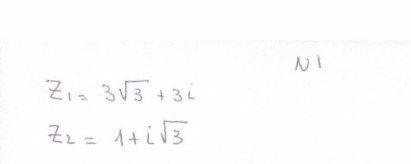 N1
Z₁ = 3√3 + 3i
Z₂ = 1 + i√3